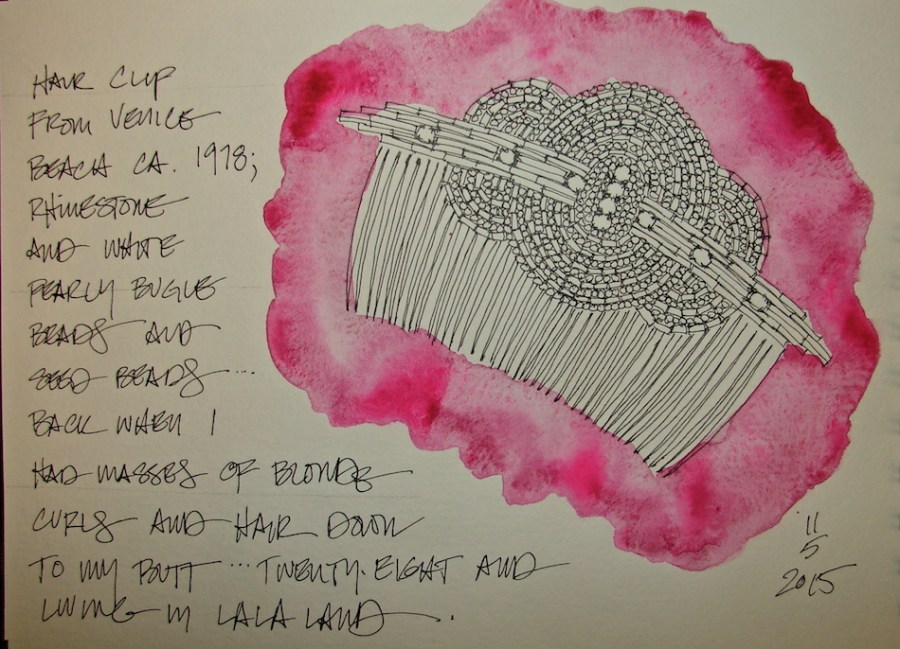 HAIR CLIP
FROM VENICE
BEACH CA. 1978;
RHINESTONE
AND WHITE
PEARLY BUGLE
BEADS AND
SEED BEADS ...
BACK WHEN I
HAD MASSES OF BLONDE
CURLS AND HAIR DOWN
TO MY BUTT ... TWENTY.EIGHT AND
LIVING IN LALA LAND.
11
5
2015